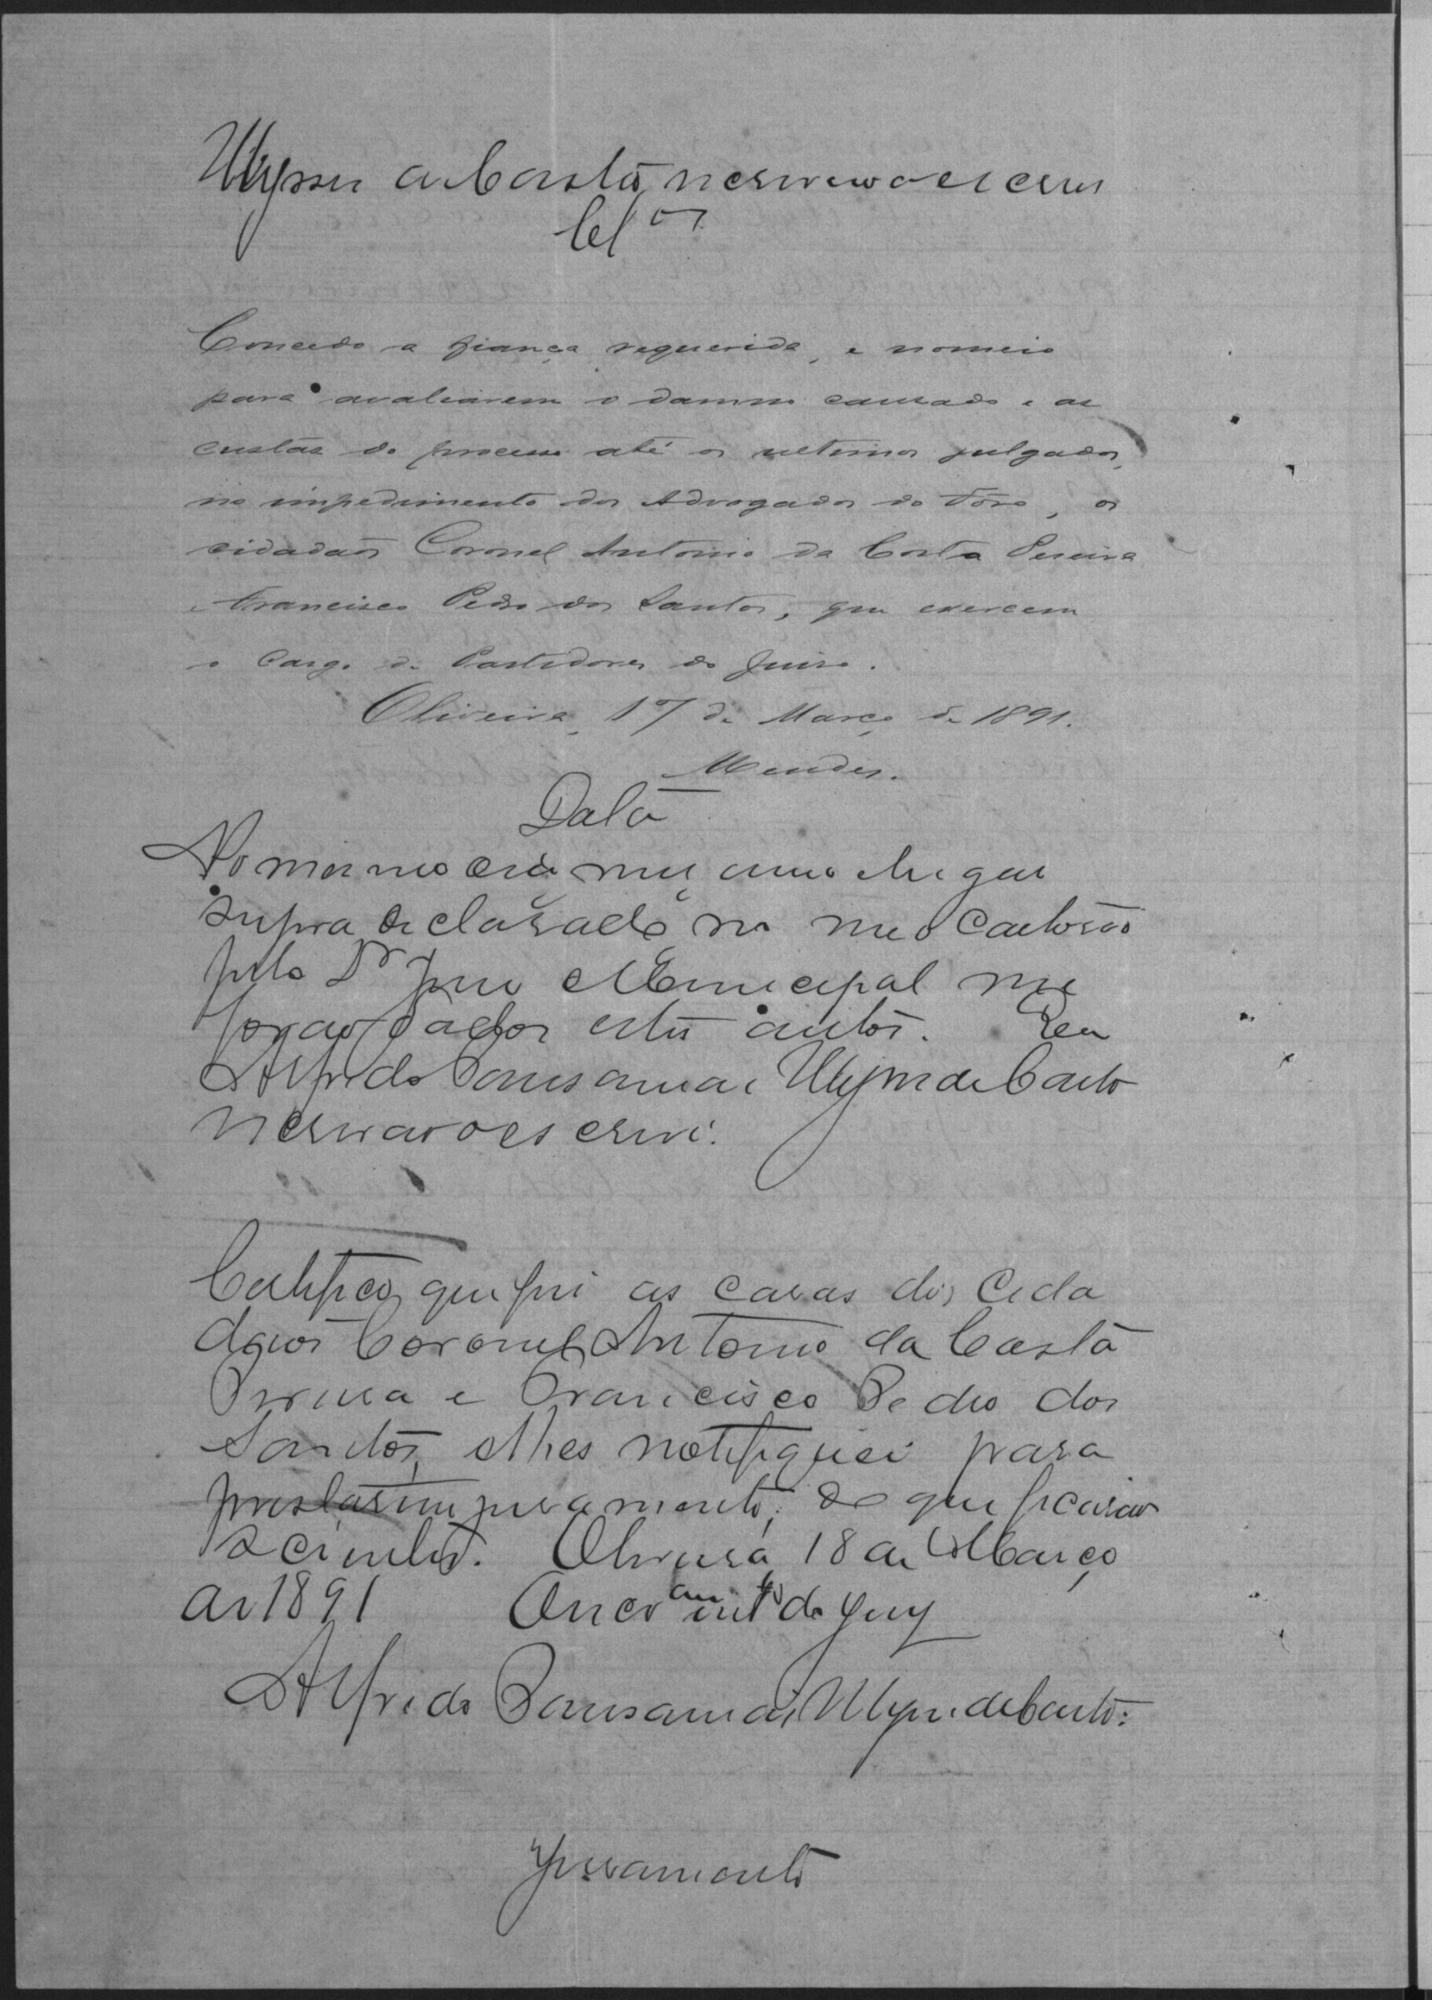 Ulysses de Castro, escrivão escrevi
Cl.os
Concedo a fiança requerida, e nomeio
para avaliarem o damno causado e as
custas do processo até os ultimos julgados,
no impedimento dos Advogados do Fôro, os
cidadãos Coronel Antonio da Costa Pereira
e Francisco Pedro dos Santos, que exercem
o cargo de Partidores do Juizo.
Oliveira, 17 de Março de 1891.
Mendes.
Data
No mesmo dia mez anno e lugar
supra declarado, no meo cartorio
pelo Dr Juiz Municipal me
forao dados estes autos. Eu
Alfredo Ulysses de Castro
escrivão escrevi.
Certifico, que fui as casas dos Cida
dãos Coronel Antonio da Costa
Pereira e Francisco Pedro dos
Santos, e lhes notifiquei para
prestarem juramento, do que ficarão
scientes. Oliveira, 18 de Março
de 1891 O escram int.o do Juizo
Alfredo Ulysses de Castro.
Juramento